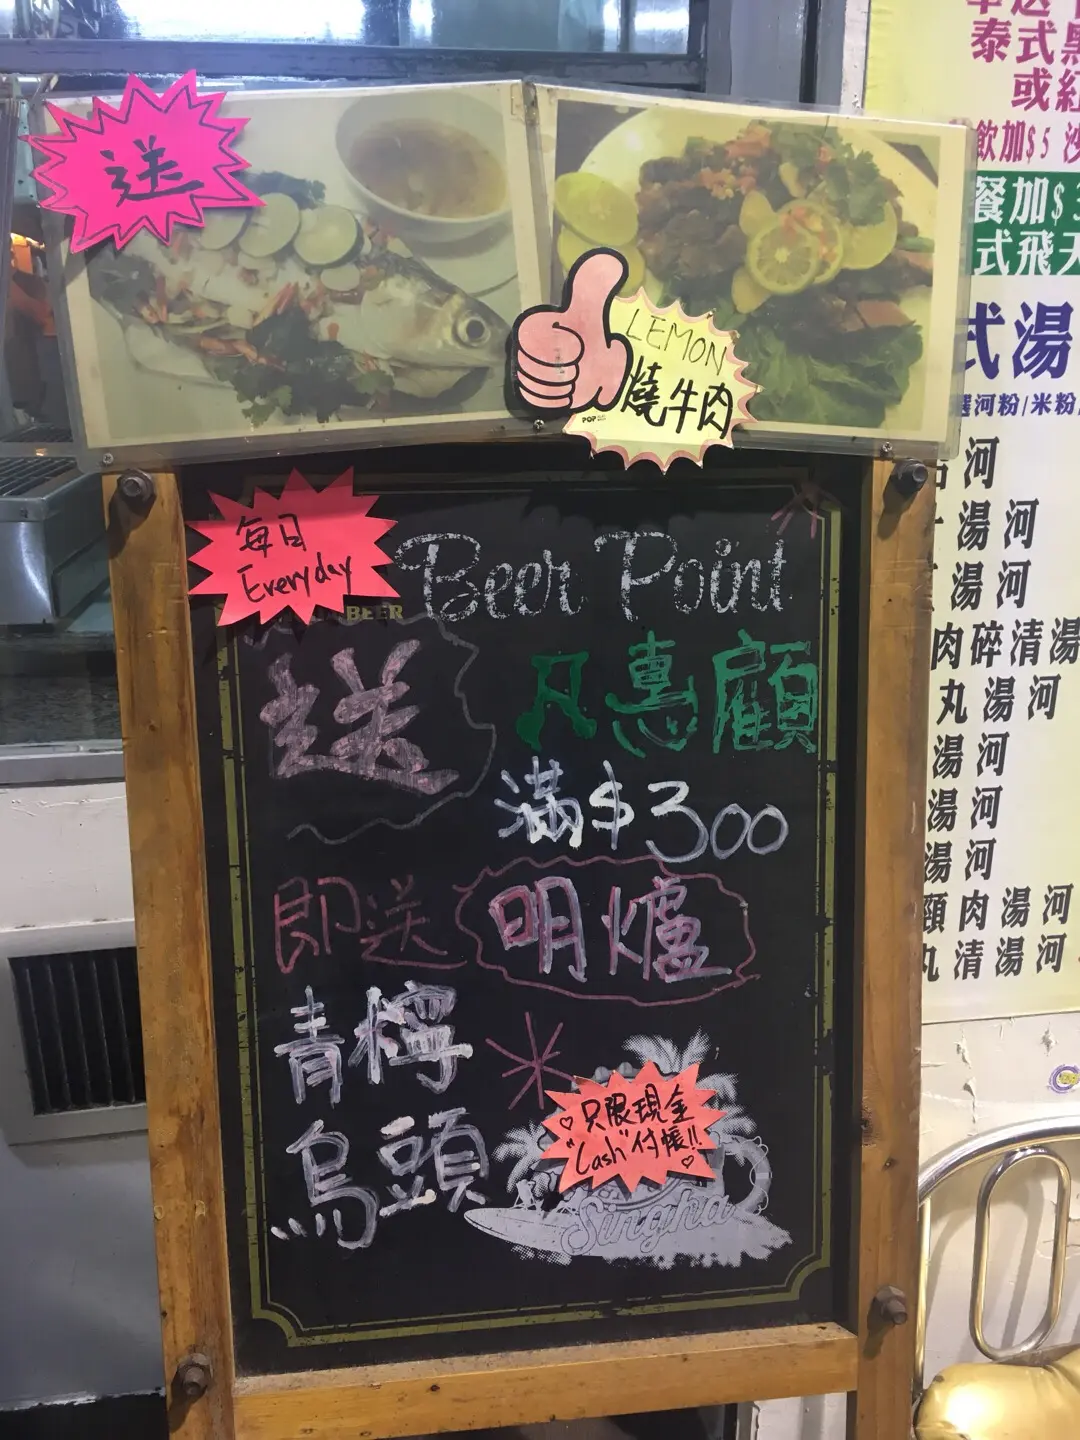 送
LEMON
燒牛肉
POP
每日
Everyday
BEER
Beer Point
送
凡惠顧
滿$300
即送
明爐
青檸
烏頭
只限現金
"Cash"付帳!!
Singha
泰式
或
飲加$5
餐加$3
式飛天
式湯
河粉/米粉
河
湯河
湯河
肉碎清湯
丸湯河
湯河
湯河
湯河
頸肉湯河
丸清湯河